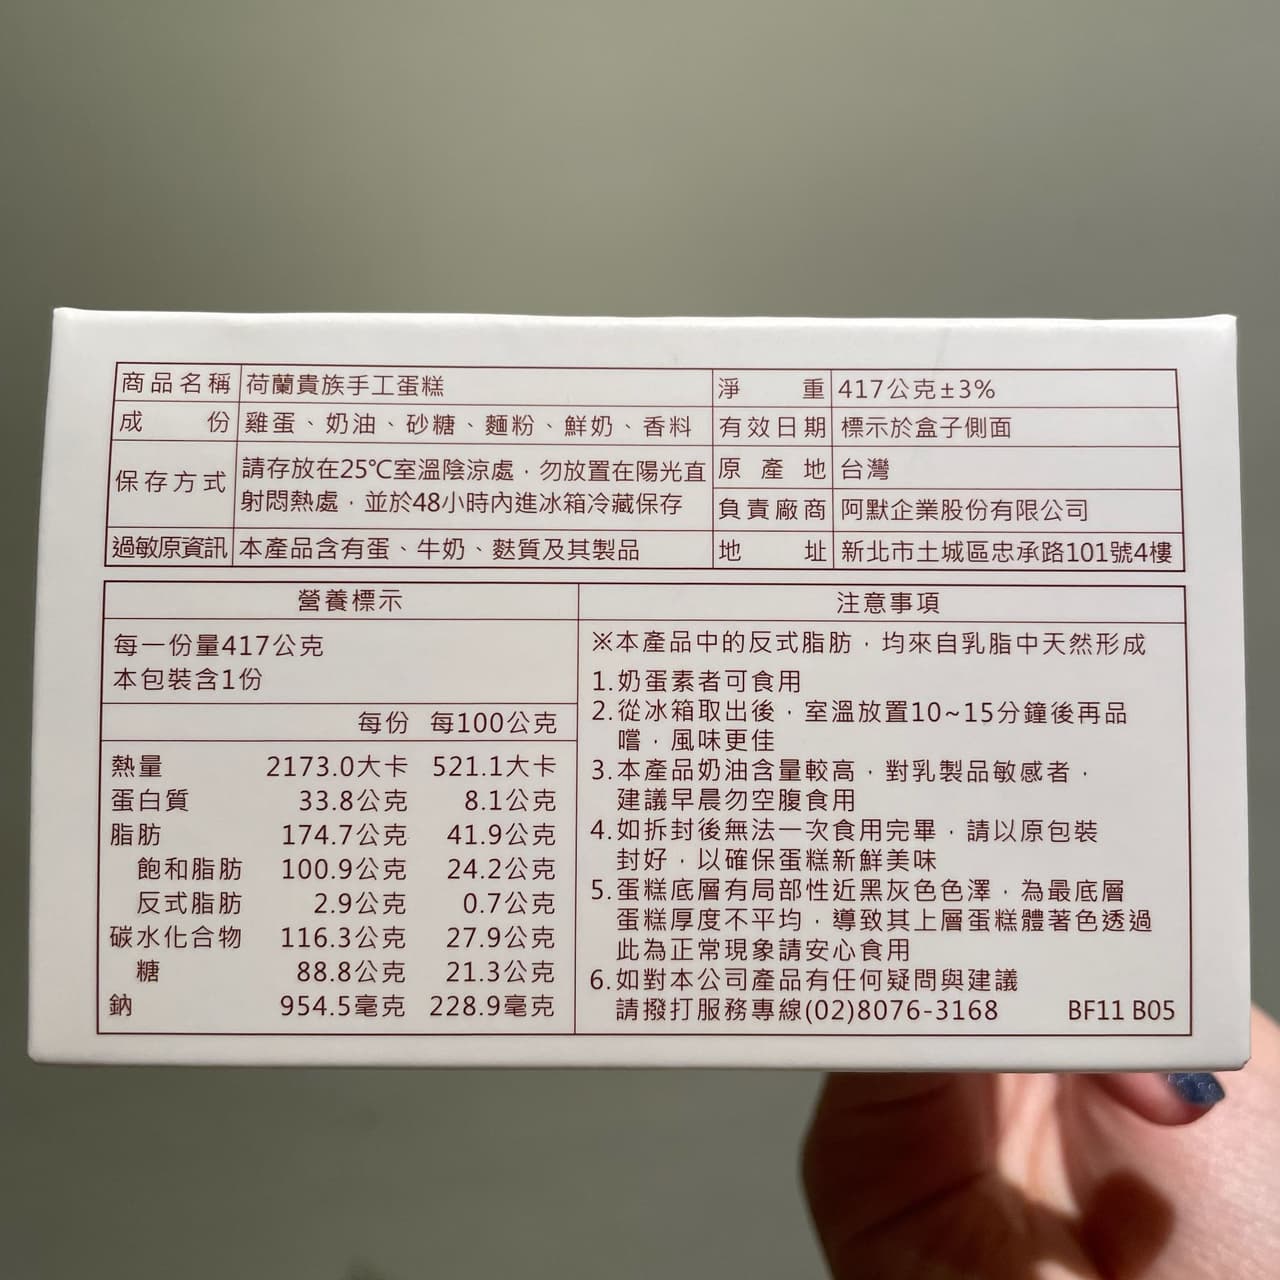 商品名稱 荷蘭貴族手工蛋糕
淨重 417公克±3%
成份 雞蛋、奶油、砂糖、麵粉、鮮奶、香料
有效日期 標示於盒子側面
保存方式 請存放在25℃室溫陰涼處，勿放置在陽光直
射悶熱處，並於48小時內進冰箱冷藏保存
原產地 台灣
負責廠商 阿默企業股份有限公司
過敏原資訊 本產品含有蛋、牛奶、麩質及其製品
地址 新北市土城區忠承路101號4樓
營養標示
每一份量417公克
本包裝含1份
每份 每100公克
熱量 2173.0大卡 521.1大卡
蛋白質 33.8公克 8.1公克
脂肪 174.7公克 41.9公克
飽和脂肪 100.9公克 24.2公克
反式脂肪 2.9公克 0.7公克
碳水化合物 116.3公克 27.9公克
糖 88.8公克 21.3公克
鈉 954.5毫克 228.9毫克
注意事項
※本產品中的反式脂肪，均來自乳脂中天然形成
1.奶蛋素者可食用
2.從冰箱取出後，室溫放置10~15分鐘後再品
嚐，風味更佳
3.本產品奶油含量較高，對乳製品敏感者，
建議早晨勿空腹食用
4.如拆封後無法一次食用完畢，請以原包裝
封好，以確保蛋糕新鮮美味
5.蛋糕底層有局部性近黑灰色色澤，為最底層
蛋糕厚度不平均，導致其上層蛋糕體著色透過
此為正常現象請安心食用
6.如對本公司產品有任何疑問與建議
請撥打服務專線(02)8076-3168
BF11 B05